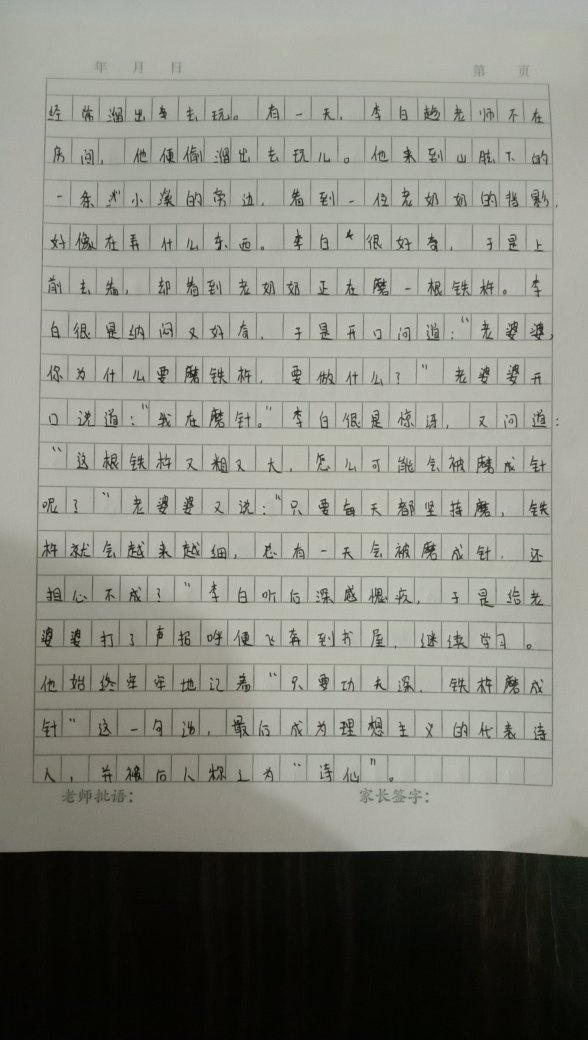 年 月 日 第 页
经常溜出去玩。有一天，李白趁老师不在
房间，他便偷溜出去玩儿。他来到山脚下的
一条小溪的旁边，看到一位老奶奶的背影，
好像在弄什么东西。李白很好奇，于是上
前去看，却看到老奶奶正在磨一根铁杵。李
白很是纳闷又好奇，于是开口问道：“老婆婆，
你为什么要磨铁杵，要做什么？”老婆婆开
口说道：“我在磨针。”李白很是惊讶，又问道：
“这根铁杵又粗又大，怎么可能会被磨成针
呢？”老婆婆又说：“只要每天都坚持磨，铁
杵就会越来越细，总有一天会被磨成针，还
担心不成？”李白听后深感愧疚，于是给老
婆婆打了声招呼便飞奔到书屋，继续学习。
他始终牢牢地记着“只要功夫深，铁杵磨成
针”这一句池，最后成为理想主义的代表诗
人，并被后人称之为“诗仙”。
老师批语： 家长签字：